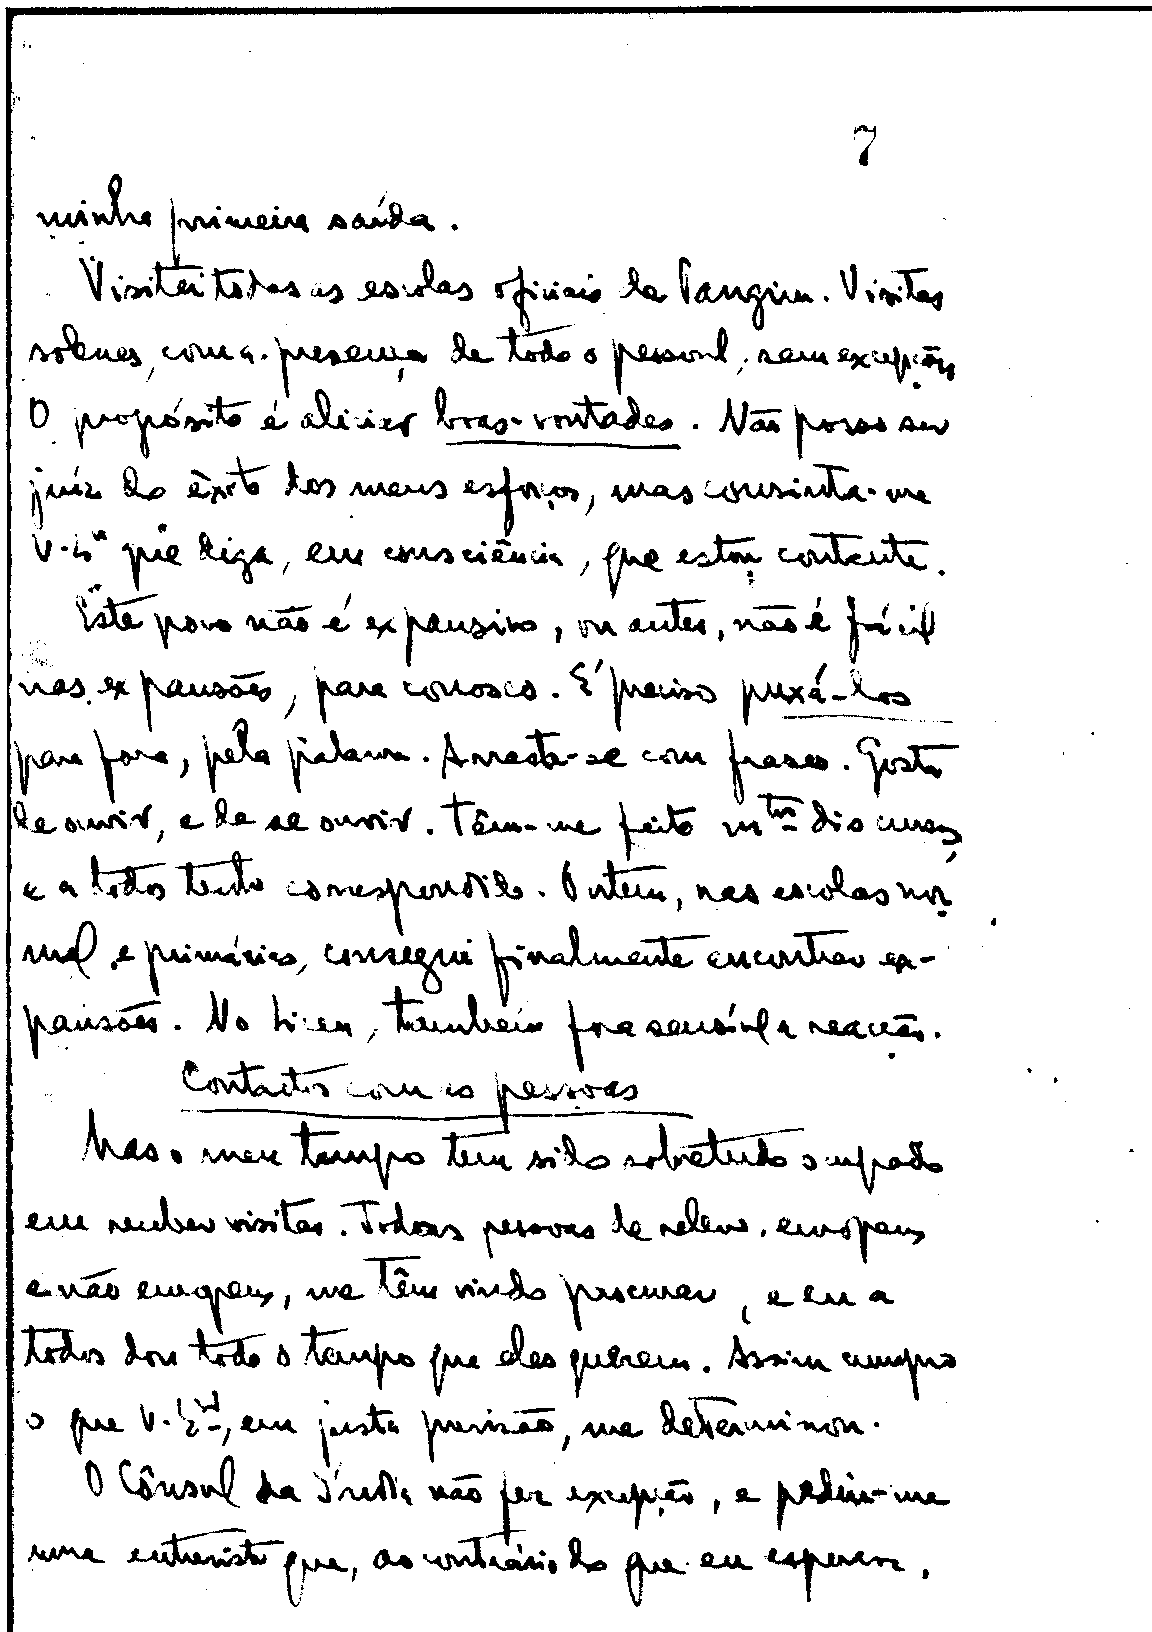 7
minha primeira saída.
Visitei todas as escolas oficiais de Pangim. Visitas
solenes, com a presença de todo o pessoal, sem excepção.
O propósito é aliciar boas-vontades. Não posso ser
juiz do êxito dos meus esforços, mas consinta-me
V. Exª que diga, em consciência, que estou contente.
Êste povo não é expansivo, ou antes, não é fácil
nas expansões, para conosco. É preciso puxá-los
para fora, pela palavra. Arrasta-se com frases. Gosta
de ouvir, e de se ouvir. Têm-me feito mtos discursos,
e a todos tenho correspondido. Ontem, nas escolas nor-
mal e primárias, consegui finalmente encontrar ex-
pansões. No Liceu, também fora sensível a reacção.
Contactos com as pessoas
Mas o meu tempo tem sido sobretudo ocupado
em receber visitas. Todas as pessoas de relevo, europeus
e não europeus, me têm vindo procurar, e eu a
todos dou todo o tempo que eles querem. Assim cumpro
o que V. Exª, em justa previsão, me determinou.
O Cônsul da Índia não fez excepção, e pediu-me
uma entrevista que, ao contrário do que eu esperava,